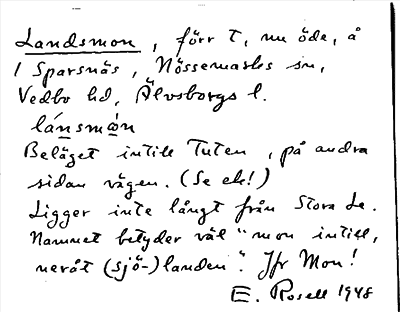 Landsmon, förr t, nu öde, å
1 Sparsnäs, Nössemarks sn,
Vedbo hd, Älvsborgs l.
lánsmòn
Beläget intill Tuten, på andra
sidan vägen. (Se ek!)
Ligger inte långt från Stora Le.
Namnet betyder väl "mon intill,
neråt (sjö-)landen". Jfr Mon!
E. Rosell 1948